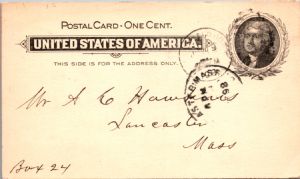 POSTAL CARD - ONE CENT.
UNITED STATES OF AMERICA.
THIS SIDE IS FOR THE ADDRESS ONLY.
Mr A C
Lancaster
Mass
Box 24